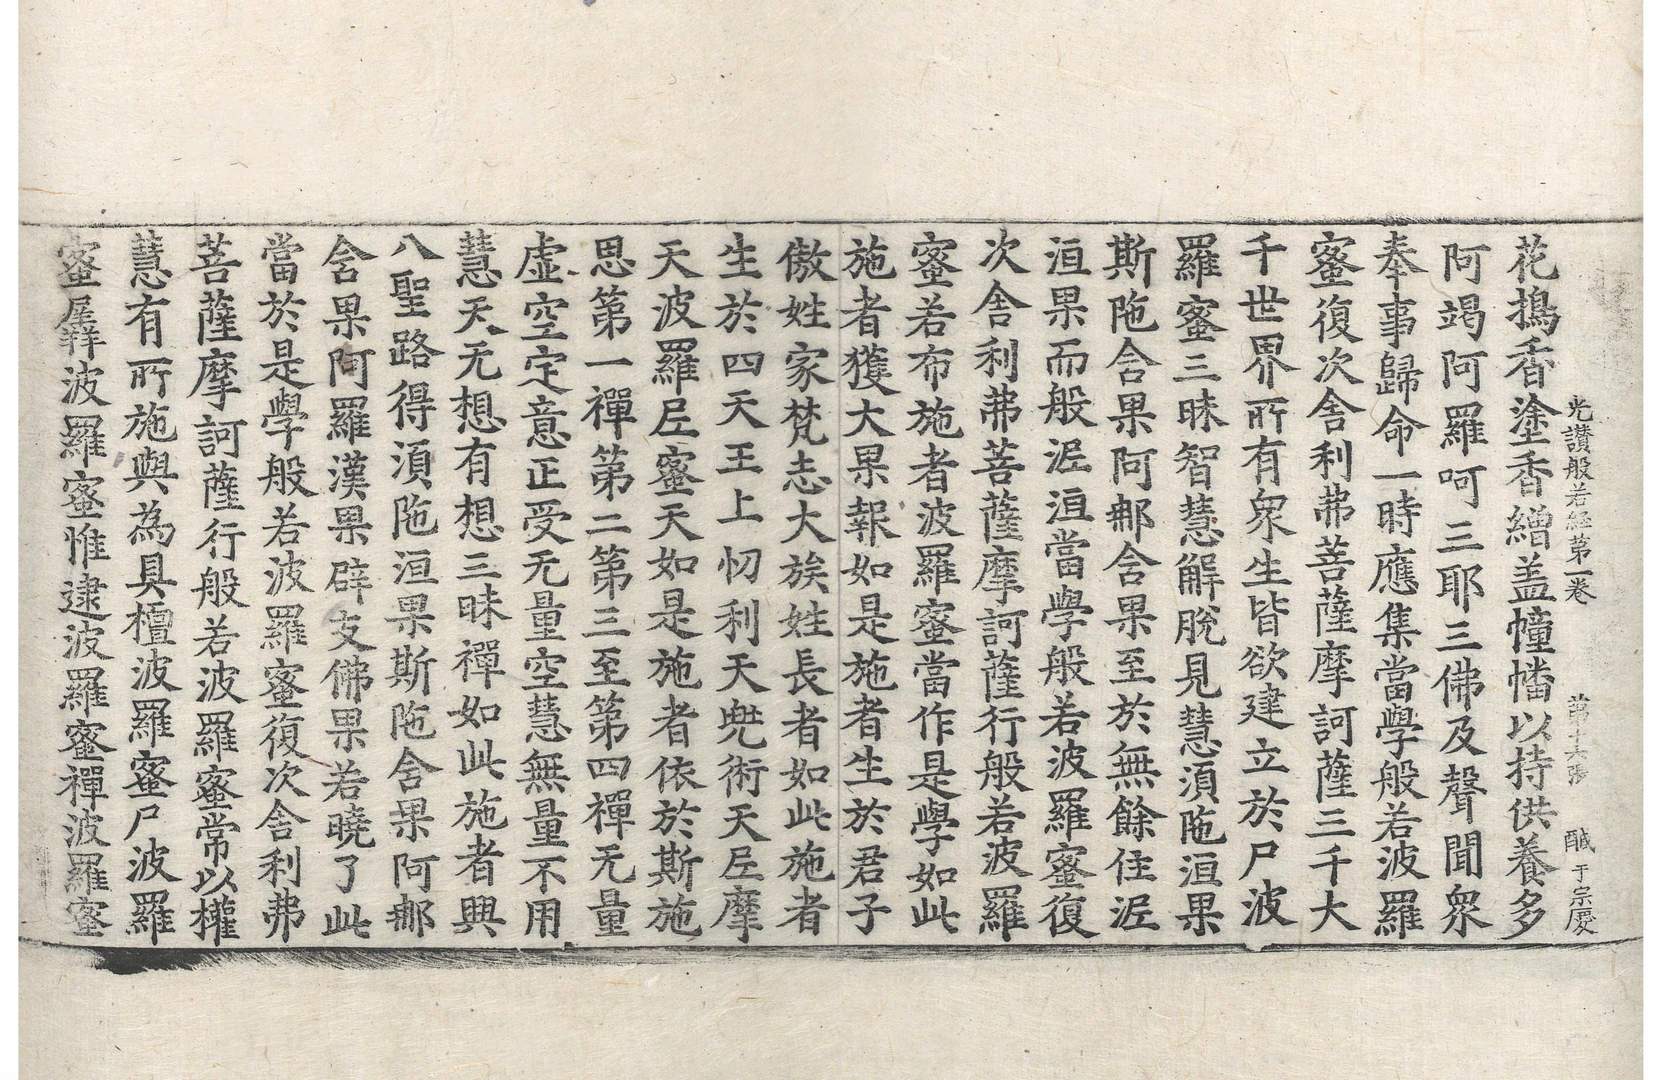 光讃般若経第一卷 第十六張 醎 于宗慶
花擣香塗香繒盖幢幡以持供養多
阿竭阿羅呵三耶三佛及聲聞衆
奉事歸命一時應集當學般若波羅
蜜復次舍利弗菩薩摩訶薩三千大
千世界所有衆生皆欲建立於尸波
羅蜜三昧智慧解脫見慧湏陁洹果
斯陁含果阿那含果至於無餘住泥
洹果而般泥洹當學般若波羅蜜復
次舍利弗菩薩摩訶薩行般若波羅
蜜若布施者波羅蜜當作是學如此
施者獲大果報如是施者生於君子
傲姓家梵志大族姓長者如此施者
生於四天王上忉利天兠術天尼摩
天波羅尼蜜天如是施者依於斯施
思第一禪第二第三至第四禪无量
虛空定意正受无量空慧無量不用
慧天无想有想三昧禪如此施者興
八聖路得湏陁洹果斯陁含果阿那
含果阿羅漢果辟支佛果若曉了此
當於是學般若波羅蜜復次舍利弗
菩薩摩訶薩行般若波羅蜜常以權
慧有所施與為具檀波羅蜜尸波羅
蜜羼波羅蜜惟逮波羅蜜禪波羅蜜